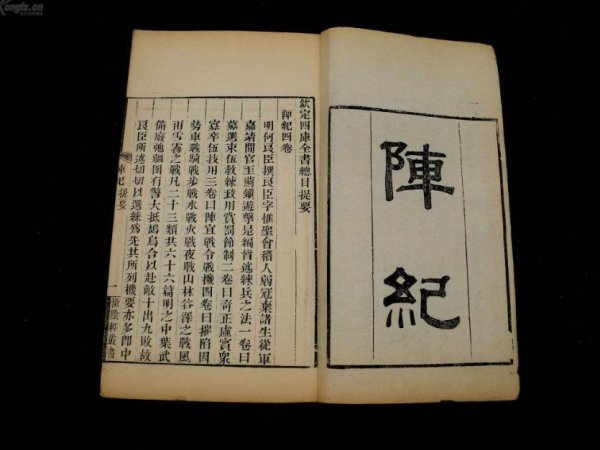 陣紀
欽定四庫全書總目提要
陣紀四卷
明何良臣撰良臣字惟聖會稽人弱冠棄諸生從軍
嘉靖間官至薊鎮遊擊是編皆述練兵之法一卷曰
募選束伍教練致用賞罰節制二卷曰奇正虛實衆
寡卒伍技用三卷曰陣宜戰令戰機四卷曰摧陷因
勢車戰騎戰步戰水戰火戰夜戰山林谷澤之戰風
雨雪霧之戰凡二十三類共六十六篇明之中葉武
備廢弛疆圉有警大抵鳩烏合以赴敵十出九敗故
良臣所述切切以選練爲先其所列機要亦多即中
陣紀提要 一 惜陰軒叢書
Kongfz.cn